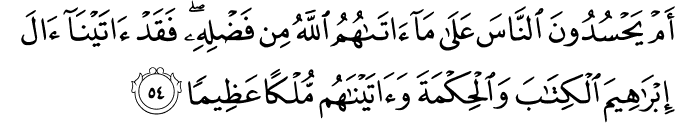 أَمۡ يَحۡسُدُونَ ٱلنَّاسَ عَلَىٰ مَآ ءَاتَىٰهُمُ ٱللَّهُ مِن فَضۡلِهِۦۖ فَقَدۡ ءَاتَيۡنَآ ءَالَ
إِبۡرَٰهِيمَ ٱلۡكِتَٰبَ وَٱلۡحِكۡمَةَ وَءَاتَيۡنَٰهُم مُّلۡكًا عَظِيمٗا ٥٤